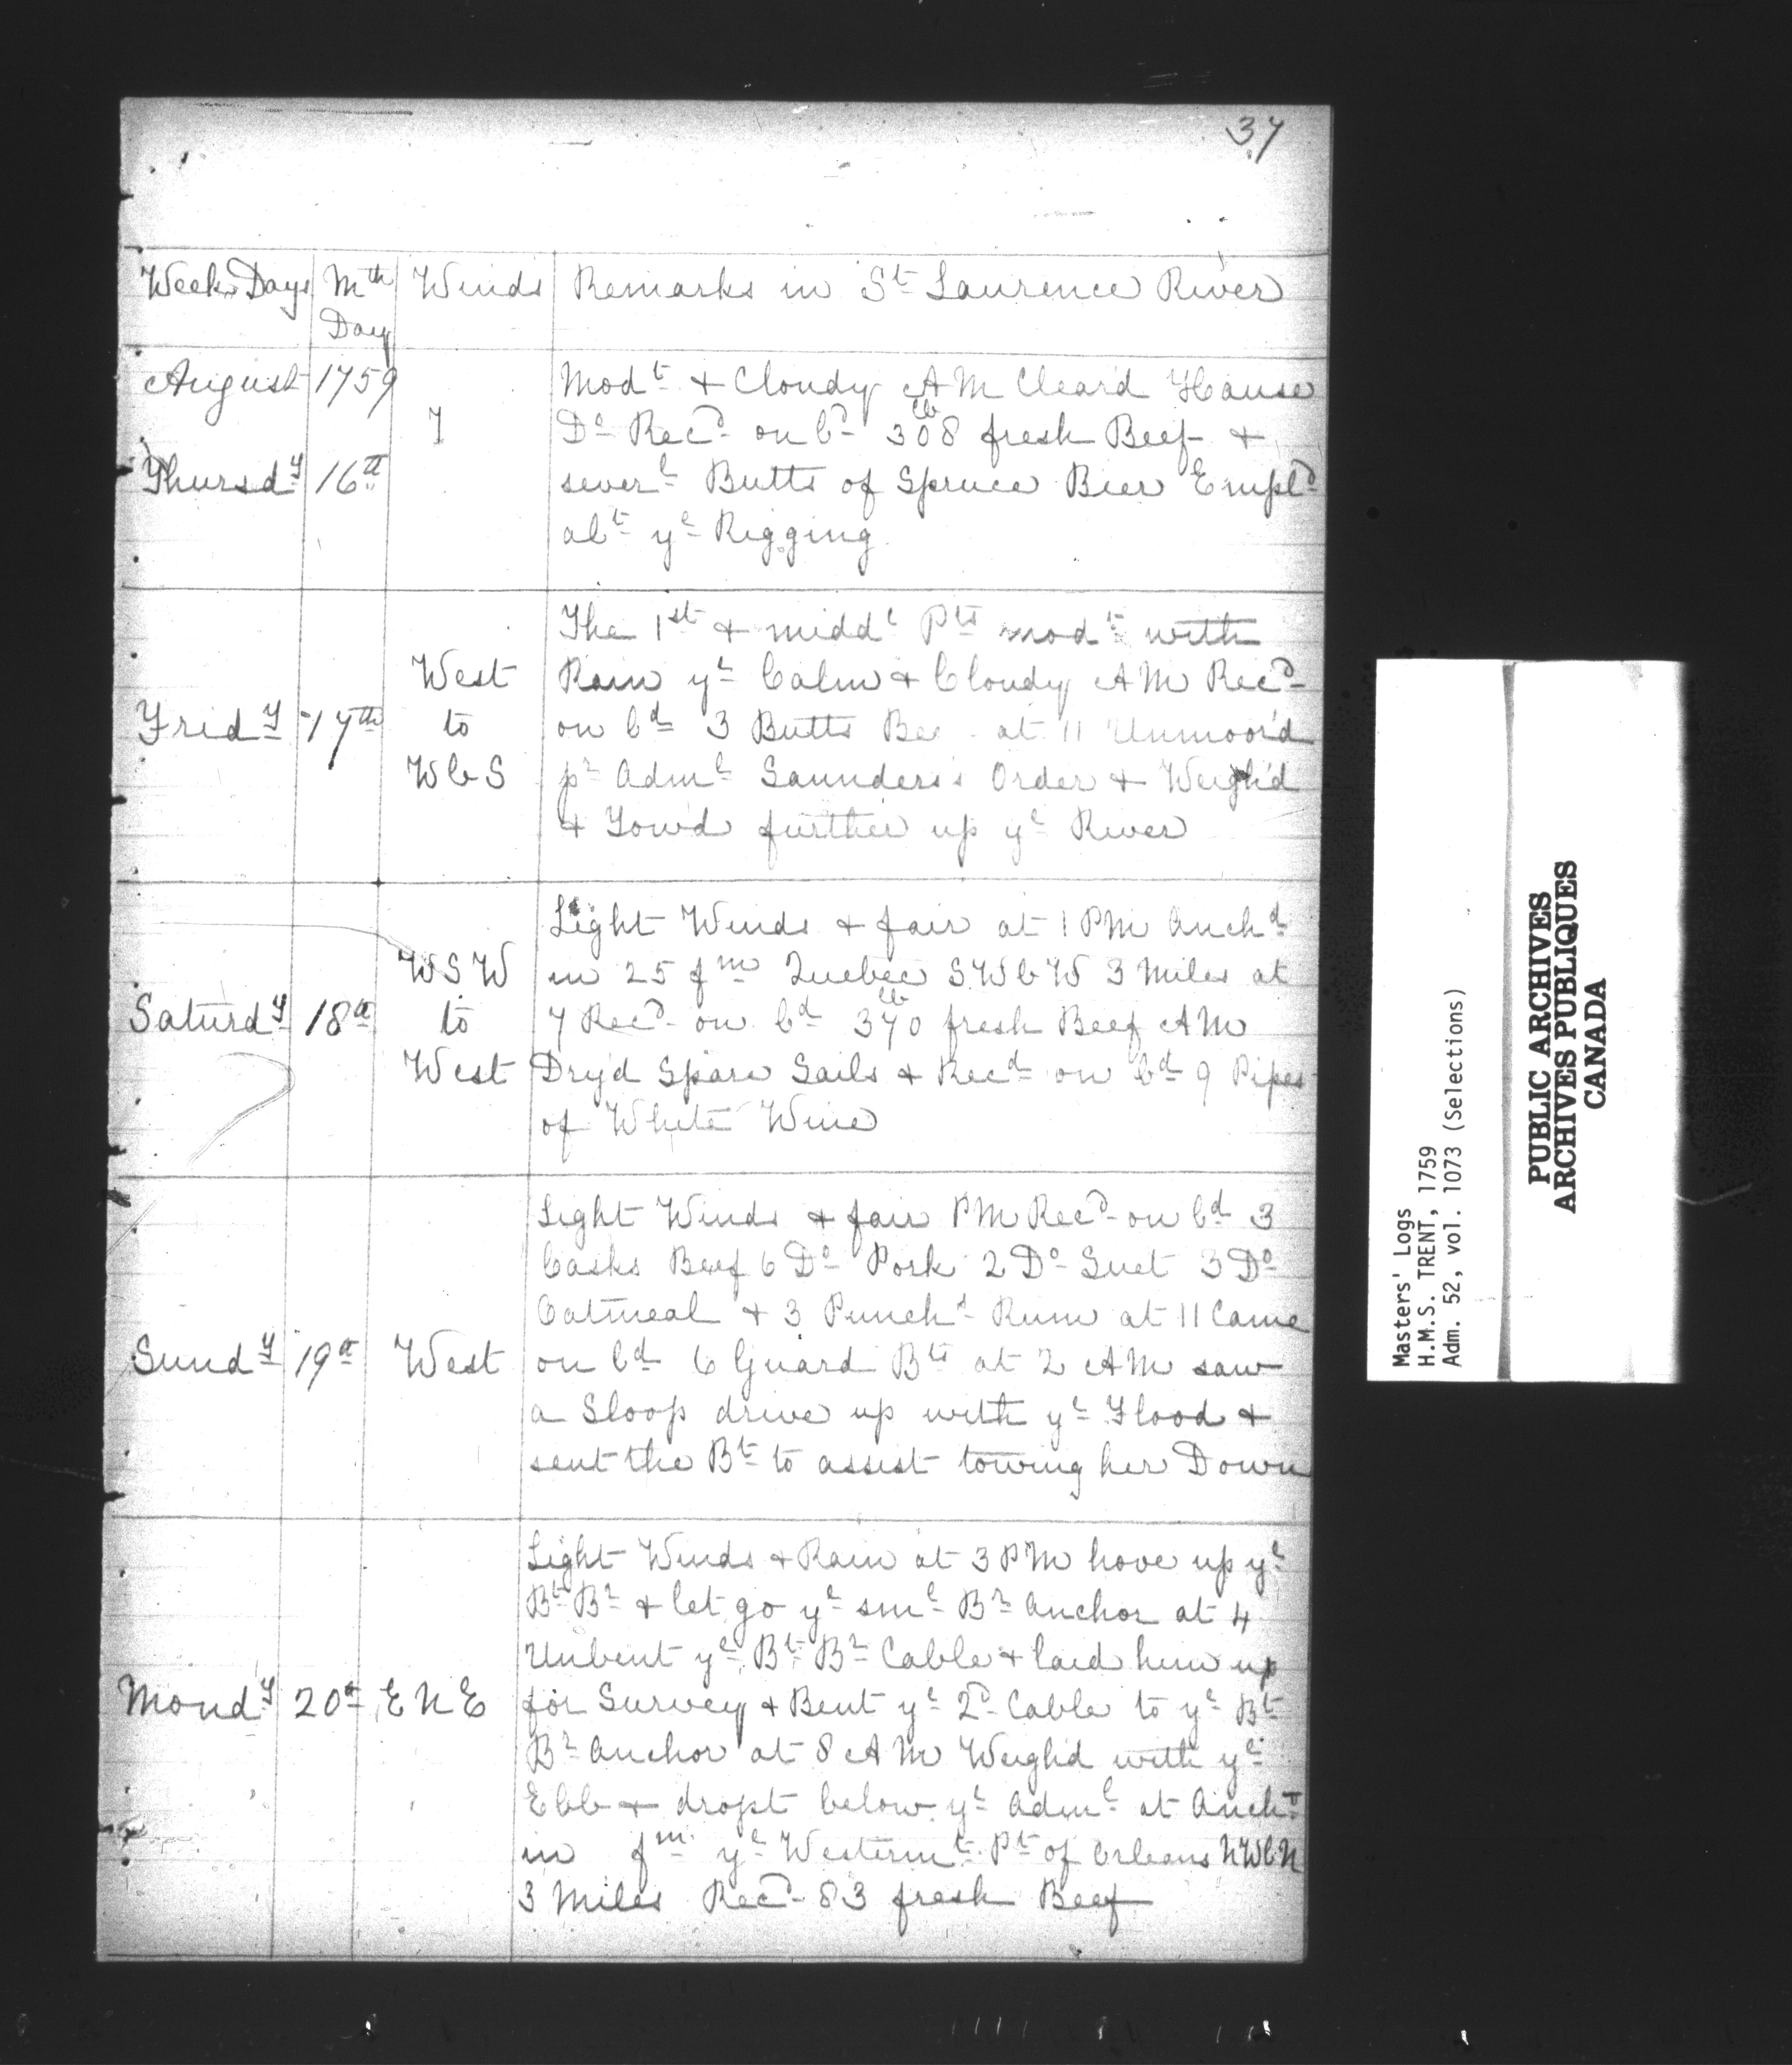 37
Weeks Days Mth Day Winds Remarks in St Laurence River
August 1759 Modt & Cloudy AM Cleard Hause
Do Recd on bd 308 lb fresh Beef &
Thursdy 16th severl Butts of Spruce Beer Empld
abt ye Rigging
The 1st & middl Pts modt with
West Rain yn Calm & Cloudy AM Recd
Fridy 17th to on bd 3 Butts at 11 Unmoor'd
WbS pr Adml Saunders's Order & Weigh'd
& Tow'd further up ye River
Light Winds & fair at 1 PM Anchd
WSW in 25 fm Quebec SWbW 3 Miles at
Saturdy 18th to 7 Recd on bd 370 lb fresh Beef AM
West Dry'd Spare Sails & Recd on bd 9 Pipes
of White Wine
Light Winds & fair PM Recd on bd 3
Casks Beef 6 Do Pork 2 Do Suet 3 Do
Oatmeal & 3 Punchs Rum at 11 Came
Sundy 19th West on bd 6 Guard Bts at 2 AM saw
a Sloop drive up with ye Flood &
sent the Bt to assist towing her Down
Light Winds & Rain at 3 PM hove up ye
Bt Br & let go ye sml Br Anchor at 4
Unbent ye Bt Br Cable & laid him up
Mondy 20th ENE for Survey & Bent ye 2d Cable to ye Bt
Br Anchor at 8 AM Weigh'd with ye
Ebb & dropt below ye Adml at Anchd
in fm ye Westermt Pt of Orleans NWbN
3 Miles Recd 83 fresh Beef
Masters' Logs
H.M.S. TRENT, 1759
Adm. 52, vol. 1073 (Selections)
PUBLIC ARCHIVES
ARCHIVES PUBLIQUES
CANADA